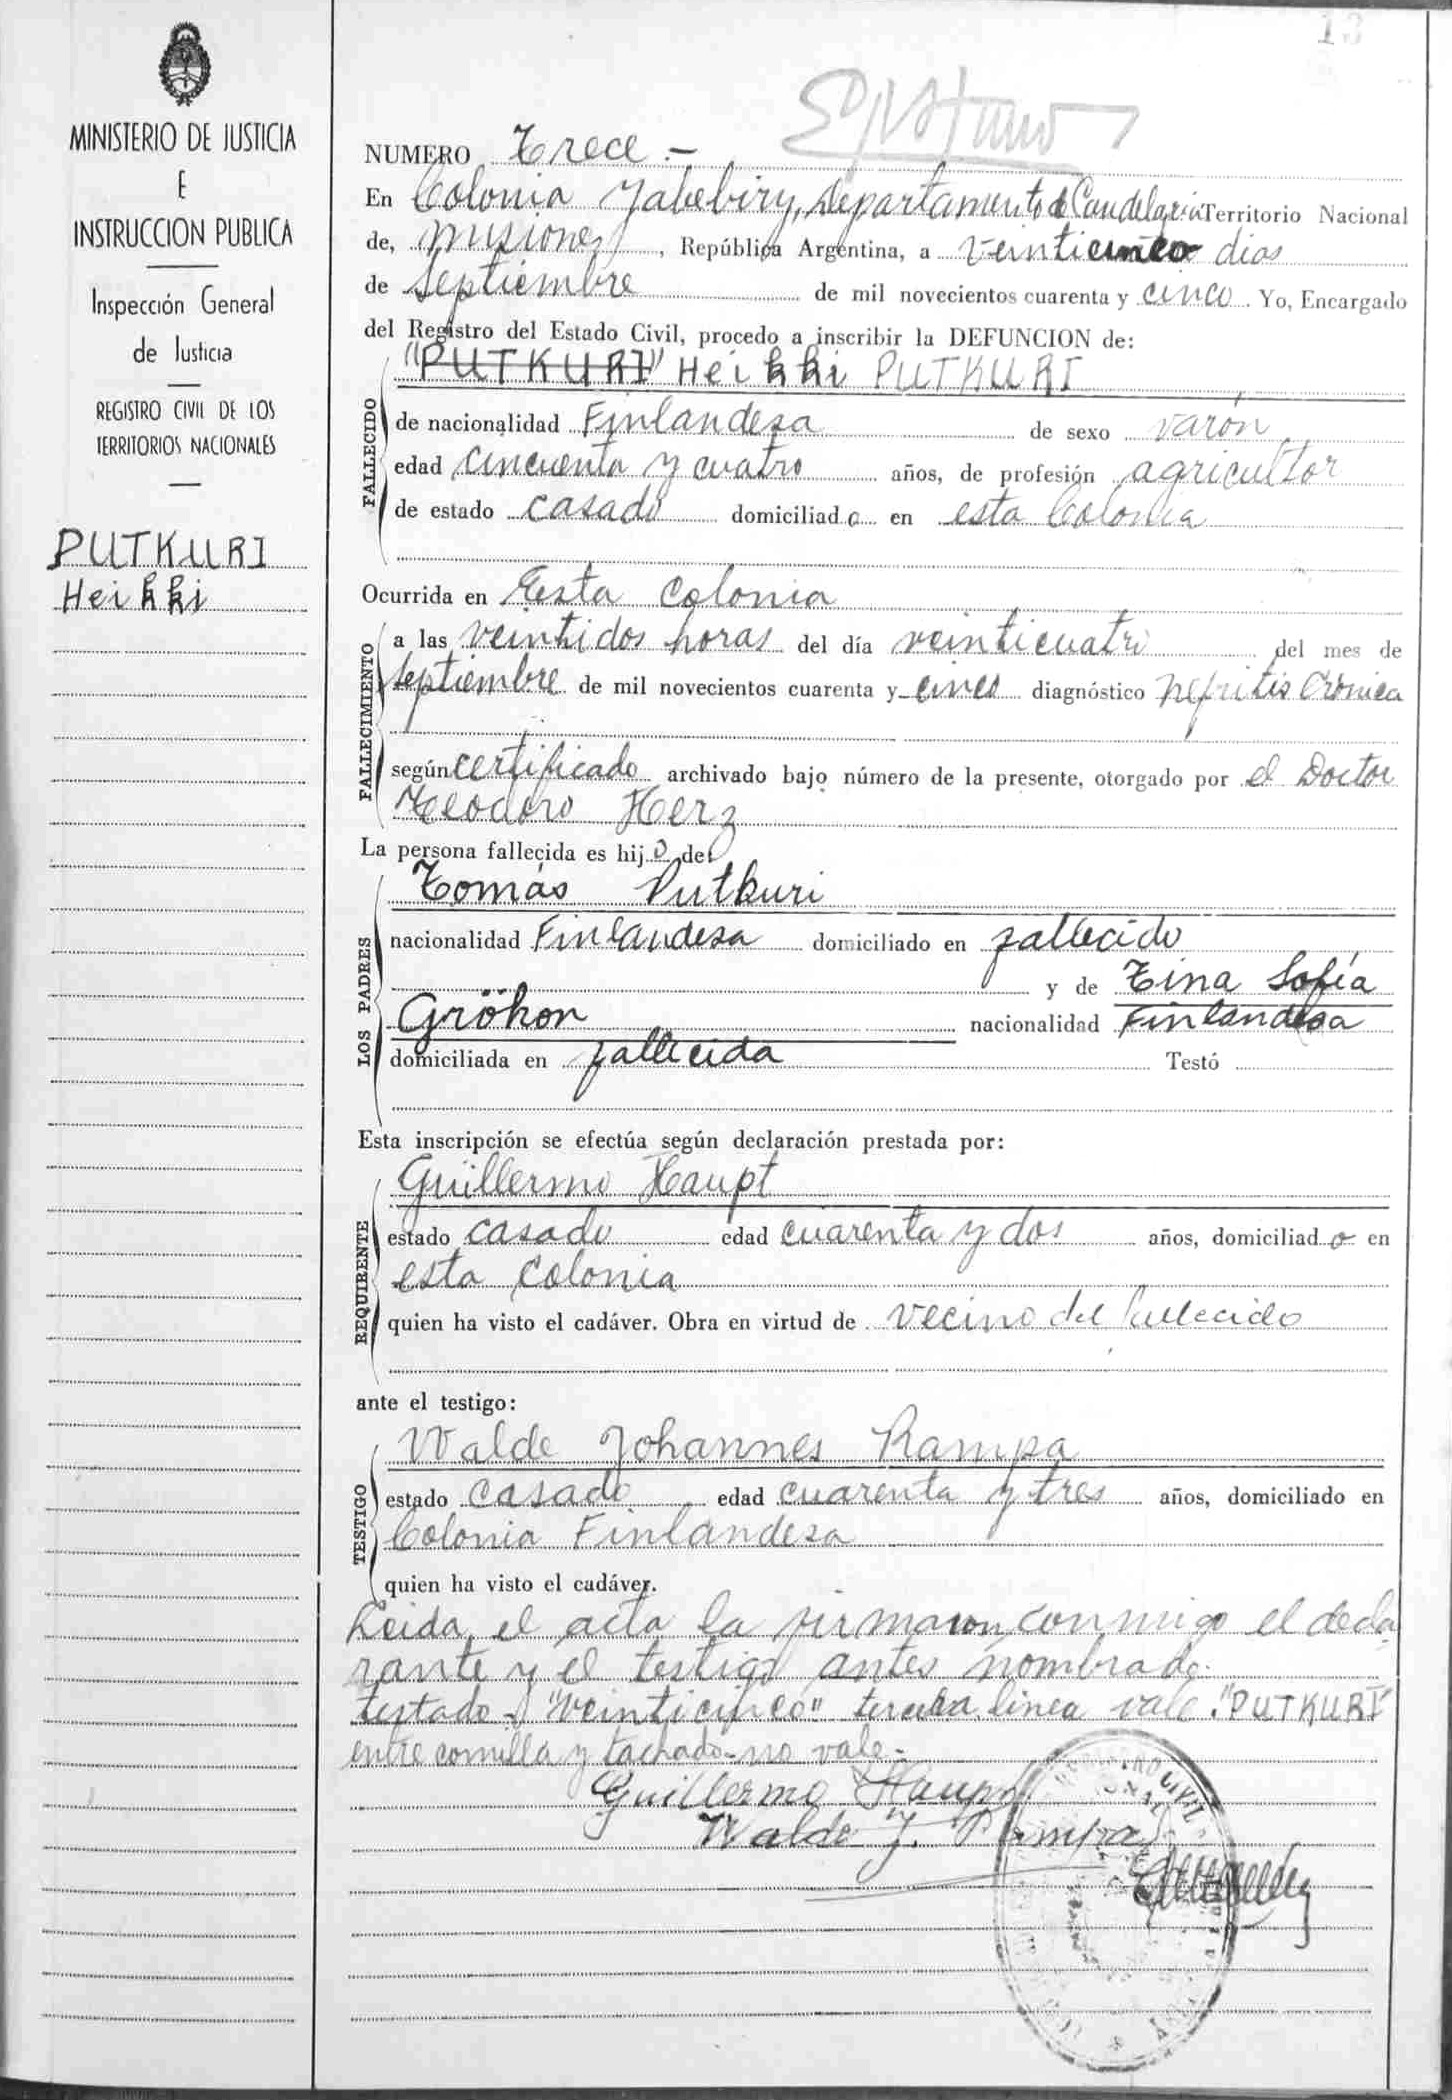 13
MINISTERIO DE JUSTICIA
E
INSTRUCCION PUBLICA
Inspección General
de Justicia
REGISTRO CIVIL DE LOS
TERRITORIOS NACIONALES
PUTKURI
Heikki
NUMERO Trece.-
En Colonia Yabebiry, Departamento de Candelaria Territorio Nacional
de, Misiones, República Argentina, a veinticinco dias
de Septiembre de mil novecientos cuarenta y cinco. Yo, Encargado
del Registro del Estado Civil, procedo a inscribir la DEFUNCION de:
"PUTKURI" Heikki PUTKURI
FALLECIDO
de nacionalidad Finlandesa de sexo varón
edad cincuenta y cuatro años, de profesión agricultor
de estado casado domiciliado en esta Colonia
Ocurrida en Esta Colonia
FALLECIMIENTO
a las veintidos horas del día veinticuatro del mes de
Septiembre de mil novecientos cuarenta y cinco diagnóstico Nefritis Crónica
según certificado archivado bajo número de la presente, otorgado por el Doctor
Teodoro Herz
La persona fallecida es hijo de:
LOS PADRES
Tomás Putkuri
nacionalidad Finlandesa domiciliado en fallecido
y de Tina Sofía
Gröhon nacionalidad Finlandesa
domiciliada en fallecida Testó
Esta inscripción se efectúa según declaración prestada por:
REQUIRENTE
Guillermo Haupt
estado casado edad cuarenta y dos años, domiciliado en
esta Colonia
quien ha visto el cadáver. Obra en virtud de vecino del fallecido
ante el testigo:
TESTIGO
Walde Johannes Rampa
estado casado edad cuarenta y tres años, domiciliado en
Colonia Finlandesa
quien ha visto el cadáver.
Leida el acta la firmaron conmigo el decla
rante y el testigo antes nombrado.
testado - "veinticinco" tercera linea vale. "PUTKURI"
entre comilla y tachado - no vale.-
Guillermo Haupt
Walde J. Rampa
CIVIL